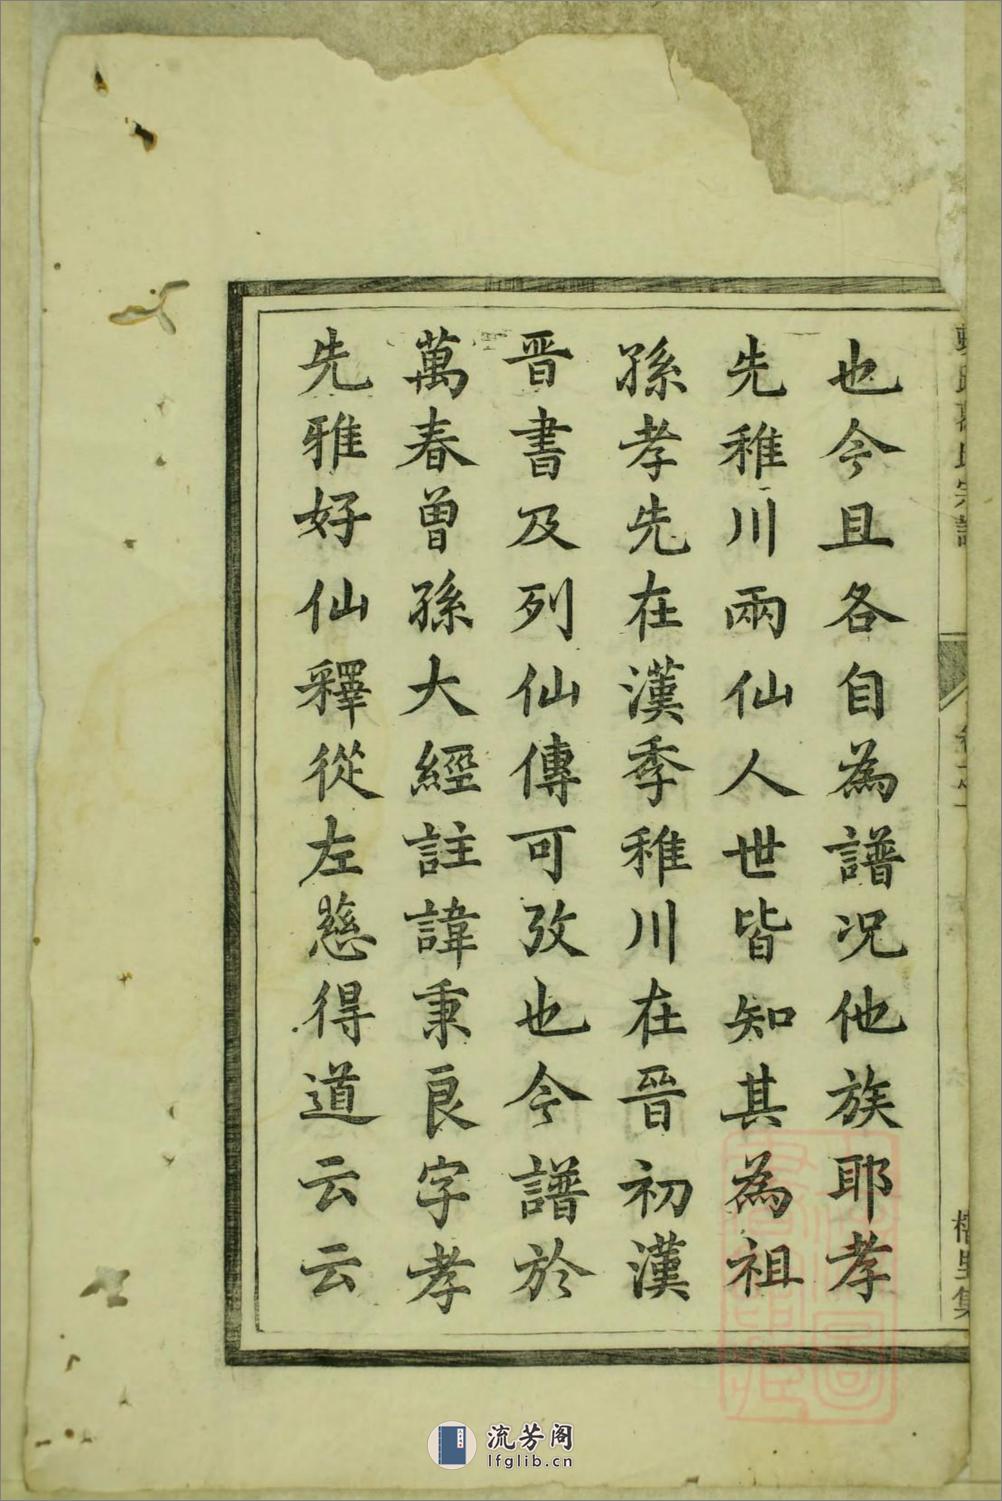 也今且各自為譜况他族耶孝
先稚川兩仙人世皆知其為祖
孫孝先在漢季稚川在晉初漢
晋書及列仙傳可攷也今譜於
萬春曾孫大經註諱秉良字孝
先雅好仙釋從左慈得道云云
流芳阁
lfglib.cn